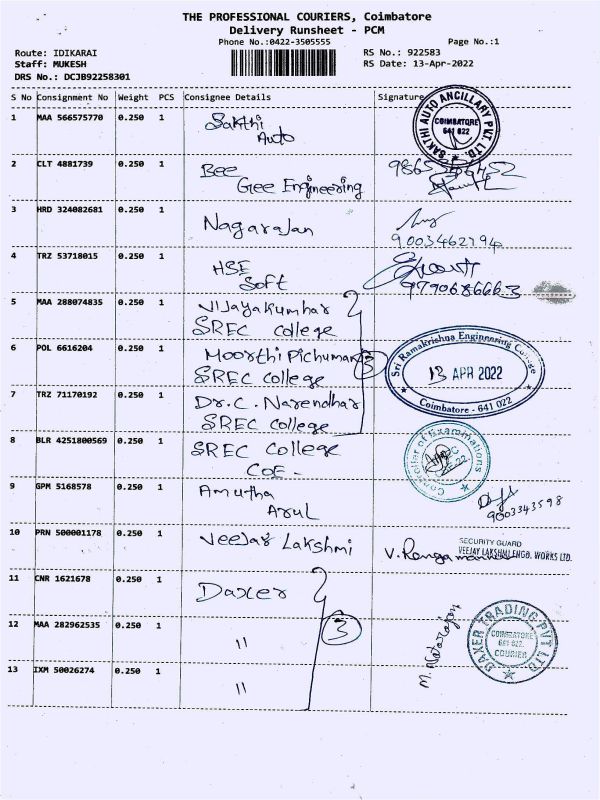 THE PROFESSIONAL COURIERS, Coimbatore
Delivery Runsheet - PCM
Phone No.:0422-3505555
Page No.:1
Route: IDIKARAI
RS No.: 922583
Staff: MUKESH
RS Date: 13-Apr-2022
DRS No.: DCJB92258301
S No Consignment No Weight PCS Consignee Details Signature
1 MAA 566575770 0.250 1 Sakthi
Auto
SAKTHI AUTO ANCILLARY PVT LTD.
COIMBATORE
641 022
2 CLT 4881739 0.250 1 Bee
Gee Engineering
3 HRD 324082681 0.250 1 Nagarajan
9003462794
4 TRZ 53718015 0.250 1 HSE
Soft
9790686663
5 MAA 288074835 0.250 1 Vijayakumhar
SREC College
6 POL 6616204 0.250 1 Moorthi Pichuman
SREC College
3
Sri Ramakrishna Engineering College
13 APR 2022
Coimbatore - 641 022
7 TRZ 71170192 0.250 1 Dr. C. Narendhar
SREC College
8 BLR 4251800569 0.250 1 SREC College
COE -
Controller of Examinations
9 GPM 5168578 0.250 1 Amutha
Arul
9003343598
10 PRN 500001178 0.250 1 Veejay Lakshmi
SECURITY GUARD
VEEJAY LAKSHMI ENGG. WORKS LTD.
11 CNR 1621678 0.250 1 Daxer
12 MAA 282962535 0.250 1 "
3
M. Natarajan
DAXER TRADING PVT LTD
COIMBATORE
641 022.
COURIER
13 IXM 50026274 0.250 1 "